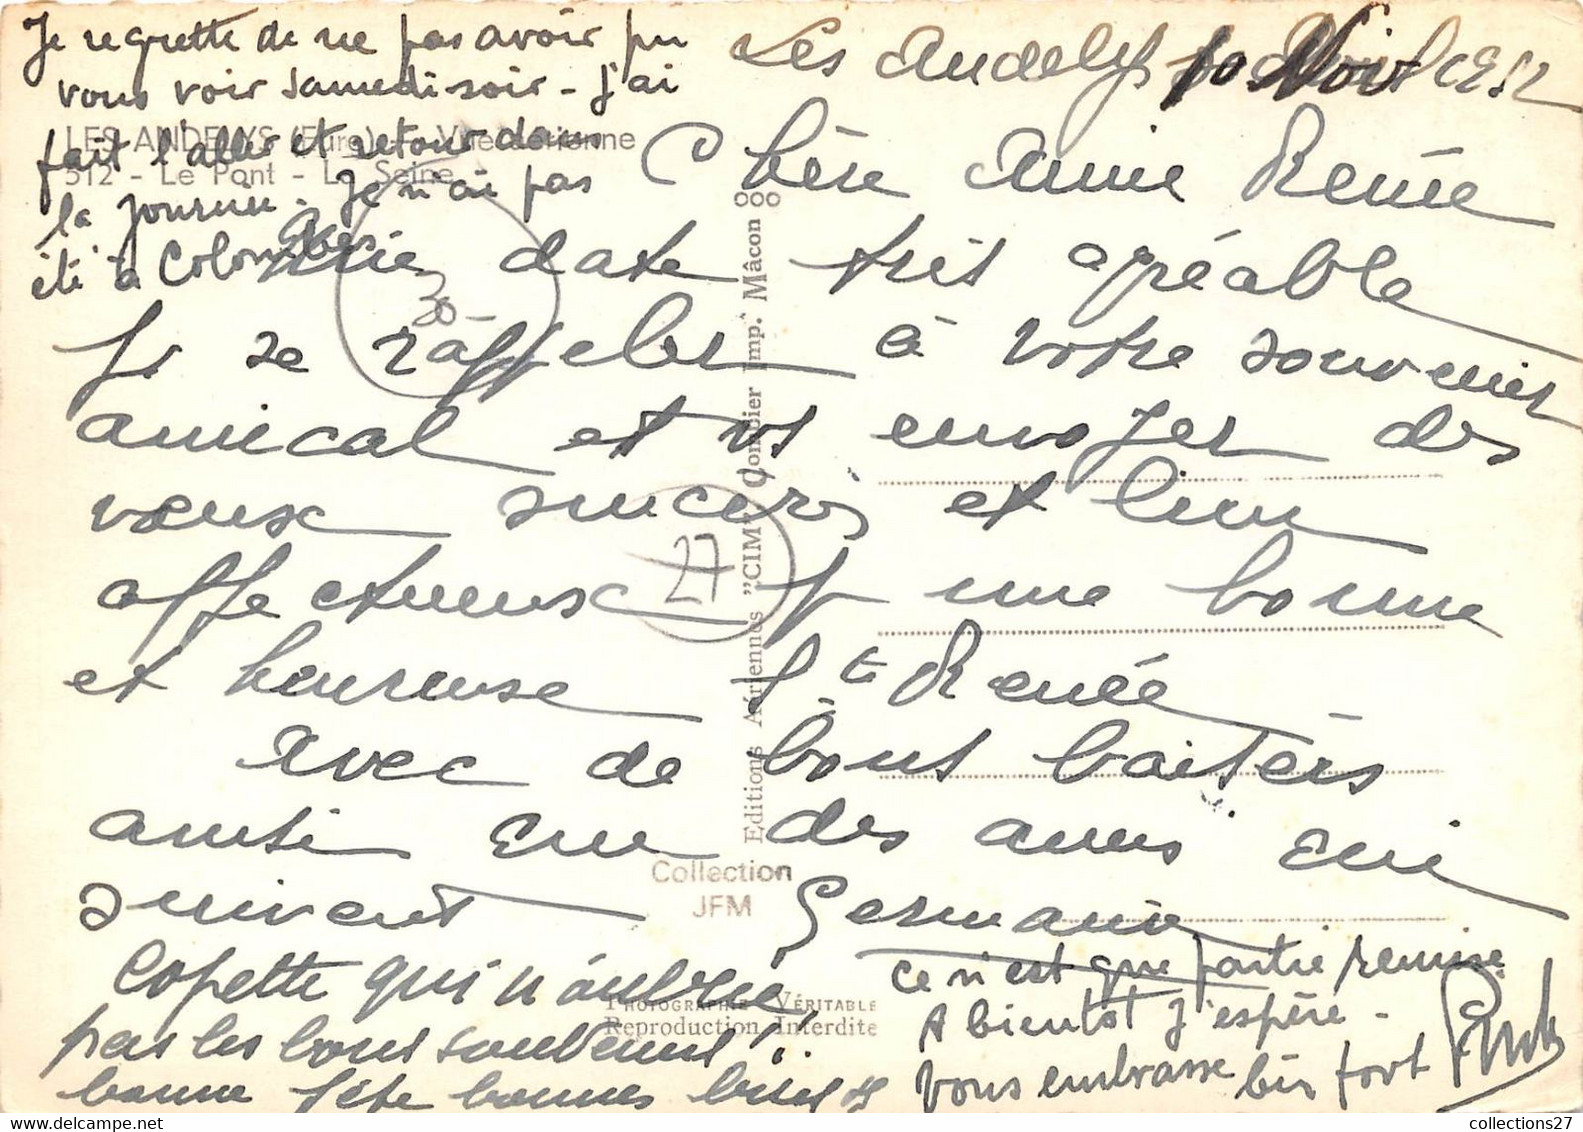 Je regrette de ne pas avoir pu
vous voir samedi soir - J'ai
fait l'aller et retour dans
la journée. Je n'ai pas
été à Colombes
LES ANDELYS (Eure) - Vue aérienne
512 - Le Pont - La Seine
Les Andelys 10 Nov 1952
Chère Amie Renée
date très agréable
pr se rappeler à votre souvenir
amical et vs envoyer des
vœux sincères et bien
affectueux pr une bonne
et heureuse Ste Renée
Avec de bons baisers
ainsi que des amis qui
suivent Germaine
Copette qui n'oublie
pas les bons souvenirs
bonne fête bonnes bises
ce n'est que partie remise
A bientôt j'espère -
Vous embrasse bien fort
30
27
Editions Aériennes "CIM" Combier Imp. Mâcon
Collection
JFM
PHOTOGRAPHIE VÉRITABLE
Reproduction Interdite
www.delcampe.net
collections27